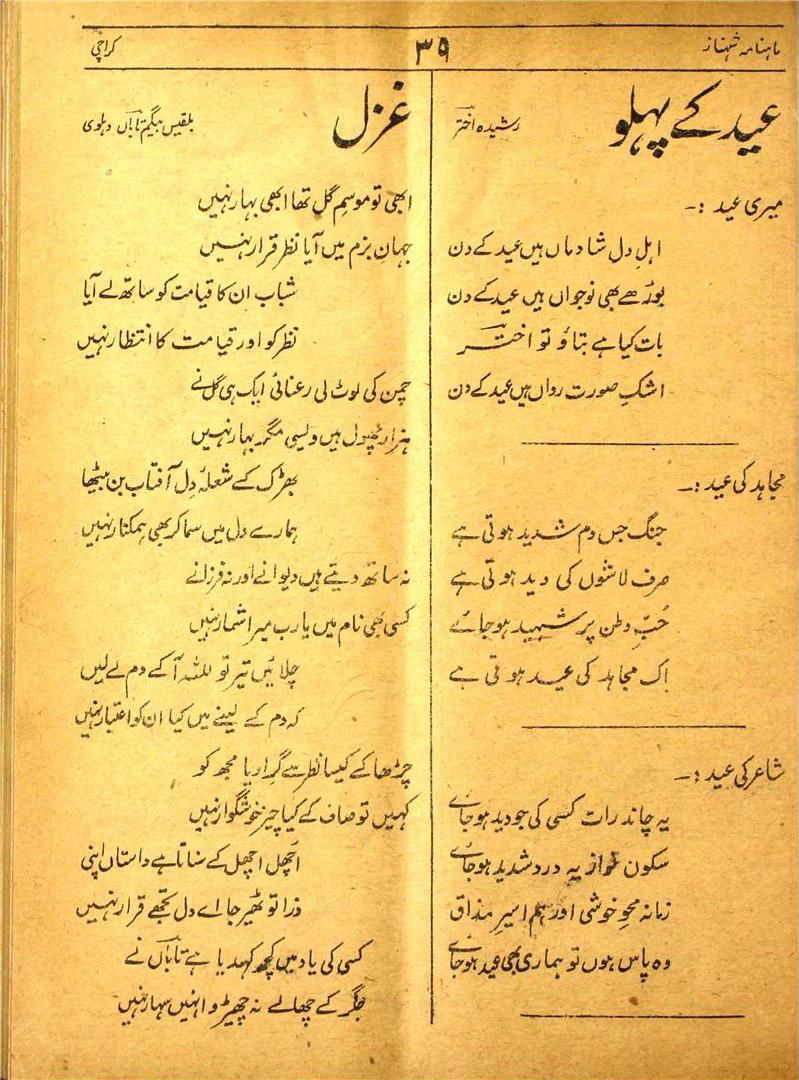 ماہنامہ شہناز
۳۹
کراچی
عید کے پہلو
رشیدہ اختر
میری عید :۔
اہلِ دل شادماں ہیں عید کے دن
بوڑھے بھی نوجواں ہیں عید کے دن
بات کیا ہے بتاؤ تو اختر
اشکِ صورت رواں ہیں عید کے دن
مجاہد کی عید :۔
جنگ جس دم شدید ہوتی ہے
صرف لاشوں کی دید ہوتی ہے
حُبِّ وطن پر شہید ہو جائے
اک مجاہد کی عید ہوتی ہے
شاعر کی عید :۔
یہ چاند رات کسی کی جو دید ہو جائے
سکون نواز یہ درد شدید ہو جائے
زمانہ محوِ خوشی اور ہم اسیرِ مذاق
وہ پاس ہوں تو ہماری بھی عید ہو جائے
غزل
بلقیس بیگم تاباں دہلوی
ابھی تو موسمِ گل تھا ابھی بہار نہیں
جہانِ بزم میں آیا نظر قرار نہیں
شباب ان کا قیامت کو ساتھ لے آیا
نظر کو اور قیامت کا انتظار نہیں
چمن کی لوٹ لی رعنائی ایک ہی گل نے
ہزار پھول ہیں ویسی مگر بہار نہیں
بھڑک کے شعلۂ دل آفتاب بن بیٹھا
ہمارے دل میں سما کر بھی ہمکنار نہیں
نہ ساتھ دیتے ہیں دیوانے اور نہ فرزانے
کسی بھی نام میں یارب میرا شمار نہیں
چلائیں تیر تو للہ آ کے دم لے لیں
کہ دم کے لینے میں کیا ان کو اعتبار نہیں
چڑھا کے کیسا نظر سے گرا دیا مجھ کو
کہیں تو صاف کے کیا چیز خوشگوار نہیں
اچھل اچھل کے سناتا ہے داستاں اپنی
ذرا تو ٹھیر جا اے دل تجھے قرار نہیں
کسی کی یاد میں کچھ کہدیا ہے تاباں نے
جگر کے چھالے نہ چھیڑو انہیں سہار نہیں